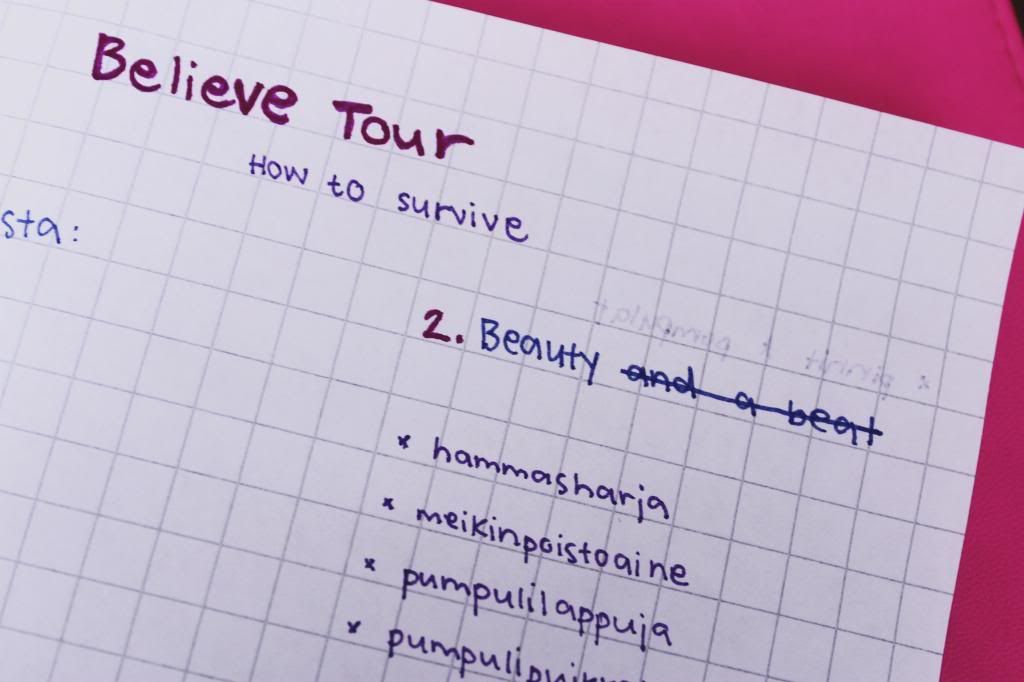 Believe Tour
How to survive
sta:
2. Beauty and a beat
* hammasharja
* meikinpoistoaine
* pumpulilappuja